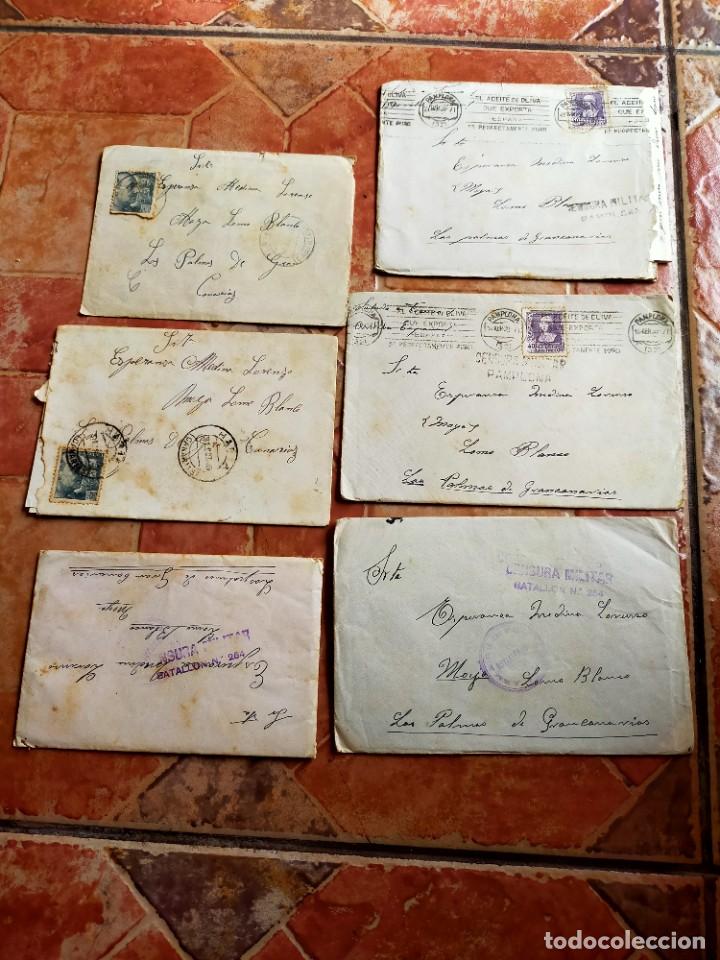 Srta
Esperanza Medina Lorenzo
Moya Lomo Blanco
Las Palmas de Gran
Canarias
PAMPLONA
EL ACEITE DE OLIVA
QUE EXPORTA
ESPAÑA
ES PERFECTAMENTE PURO
Srta
Esperanza Medina Lorenzo
Moya
Lomo Blanco
CENSURA MILITAR
PAMPLONA
Las Palmas de Grancanarias
Srta
Esperanza Medina Lorenzo
Moya Lomo Blanco
Las Palmas de Canarias
HARIA
PAMPLONA
ACEITE DE OLIVA
QUE EXPORTA
ES PERFECTAMENTE PURO
PAMPLONA
CENSURA MILITAR
PAMPLONA
Srta
Esperanza Medina Lorenzo
Moya
Lomo Blanco
Las Palmas de Grancanarias
Srta
Esperanza Medina Lorenzo
Lomo Blanco
Moya
Las palmas de Gran Canarias
CENSURA MILITAR
BATALLON N.º 264
CENSURA MILITAR
BATALLON N.º 264
Srta
Esperanza Medina Lorenzo
Moya Lomo Blanco
Las Palmas de Grancanarias
todocoleccion.net